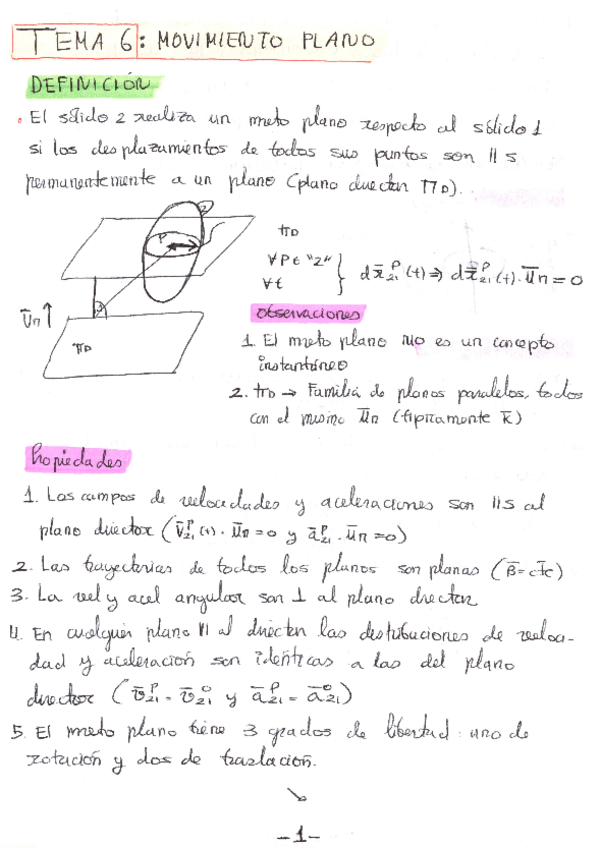 TEMA 6: MOVIMIENTO PLANO
DEFINICIÓN
• El sólido 2 realiza un mvto plano respecto al sólido 1
si los desplazamientos de todos sus puntos son ||s
permanentemente a un plano (plano director ΠD).
2
P
ΠD
∀P∈"2"
∀t
} dx̄₂₁ᴾ(t) ⇒ dx̄₂₁ᴾ(t)·ūn = 0
ūn ↑
ΠD
Observaciones
1. El mvto plano NO es un concepto
instantáneo
2. ΠD → Familia de planos paralelos, todos
con el mismo ūn (típicamente k̄)
Propiedades
1. Los campos de velocidades y aceleraciones son ||s al
plano director (v̄₂₁ᴾ(t)·ūn = 0 y ā₂₁ᴾ·ūn = 0)
2. Las trayectorias de todos los planos son planas (B̄=cte)
3. La vel y acel angular son ⊥ al plano director
4. En cualquier plano || al director las distribuciones de veloci-
dad y aceleración son idénticas a las del plano
director (v̄₂₁ᴾ = v̄₂₁ᴼ y ā₂₁ᴾ = ā₂₁ᴼ)
5. El mvto plano tiene 3 grados de libertad: uno de
rotación y dos de traslación.
-1-